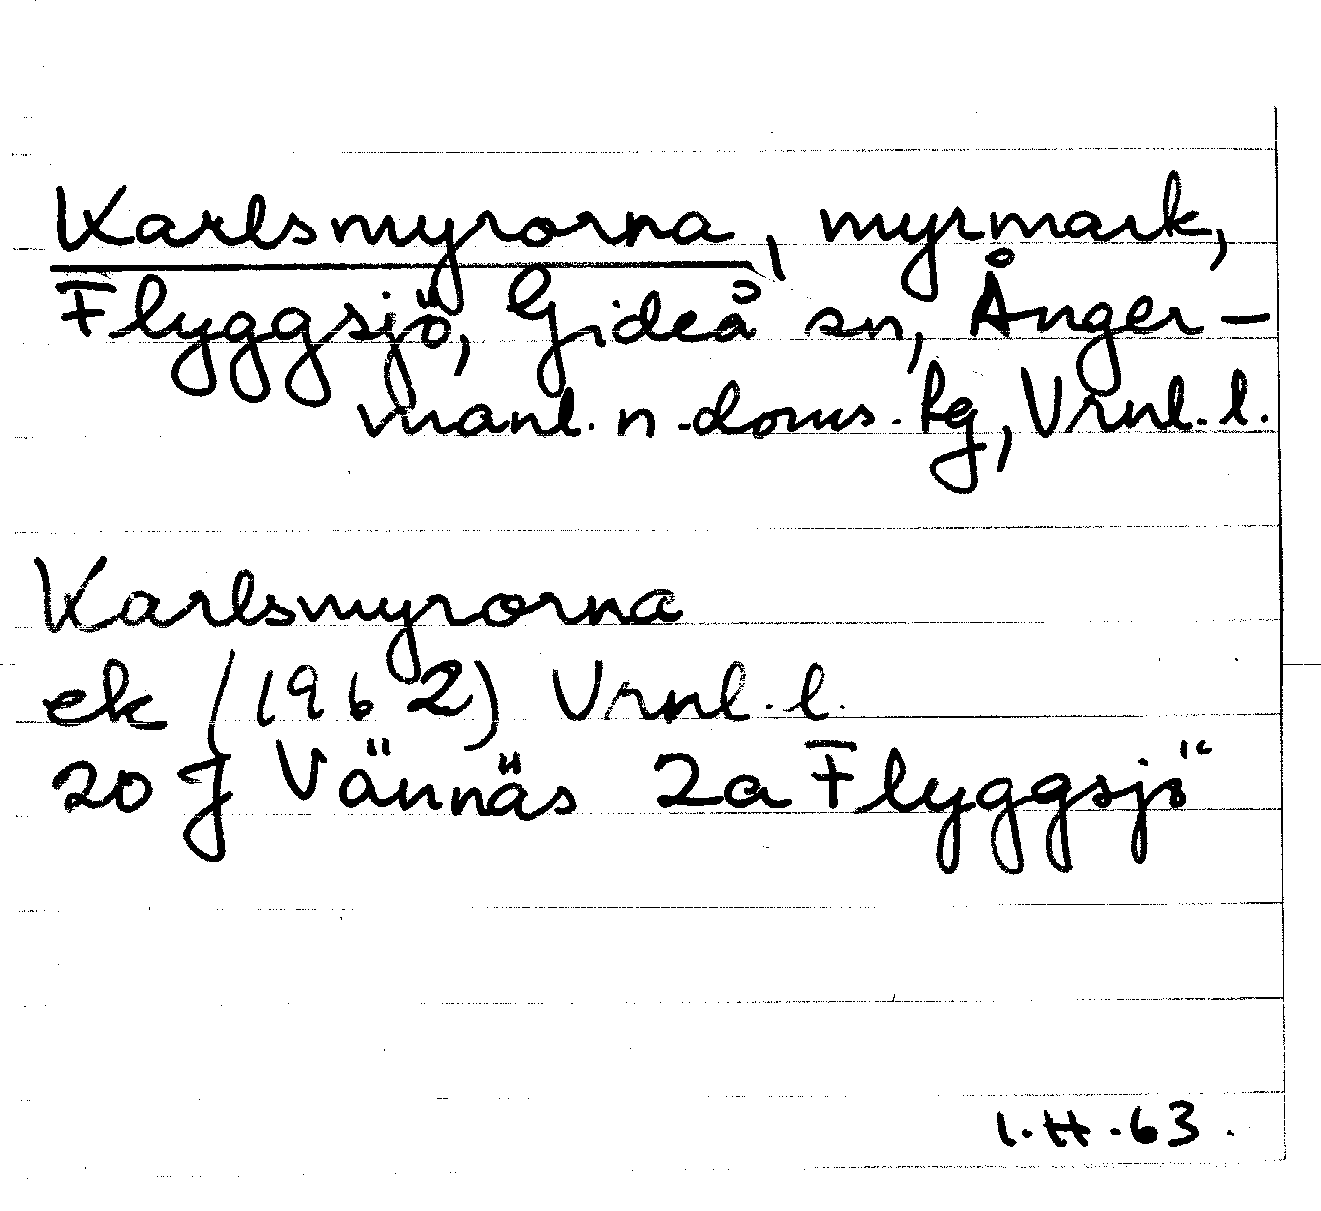 Karlsmyrorna, myrmark,
Flyggsjö, Gideå sn, Ånger-
manl. n. doms. fg, Vrnl. l.
Karlsmyrorna
ek (1962) Vrnl. l.
20 J Vännäs 2a Flyggsjö
I.H.63.